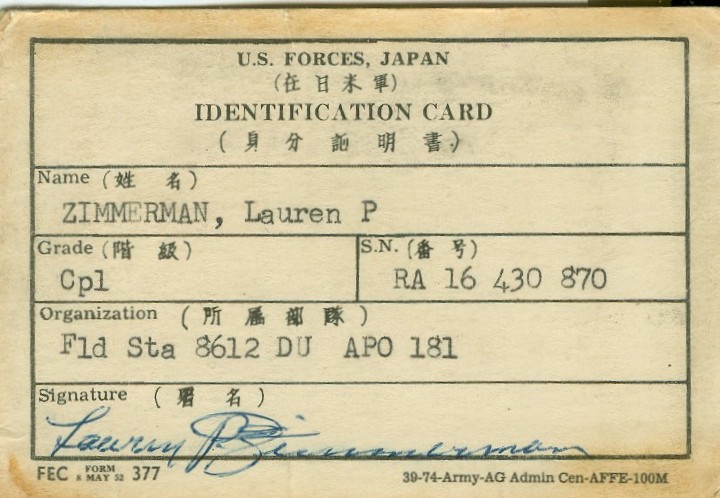 U.S. FORCES, JAPAN
(在日米軍)
IDENTIFICATION CARD
(身分証明書)
Name (姓 名)
ZIMMERMAN, Lauren P
Grade (階 級)
Cpl
S.N. (番 号)
RA 16 430 870
Organization (所属部隊)
Fld Sta 8612 DU APO 181
Signature (署 名)
Lauren P. Zimmerman
FEC FORM 8 MAY 52 377
39-74-Army-AG Admin Cen-AFFE-100M